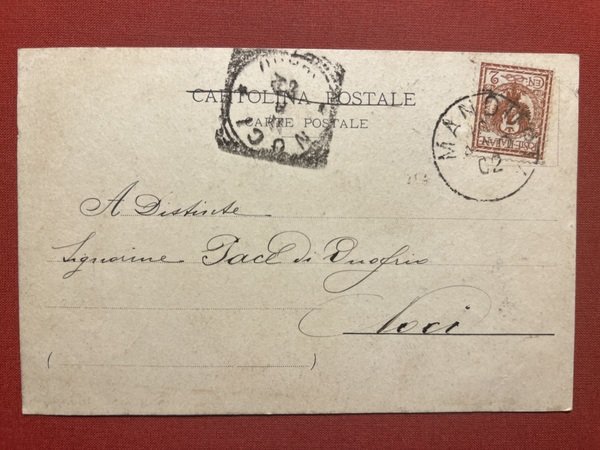 CARTOLINA POSTALE
CARTE POSTALE
NOCI
CEN 2
MANDU
02
A Distinte
Signorine Pace di Onofrio
Noci
( )